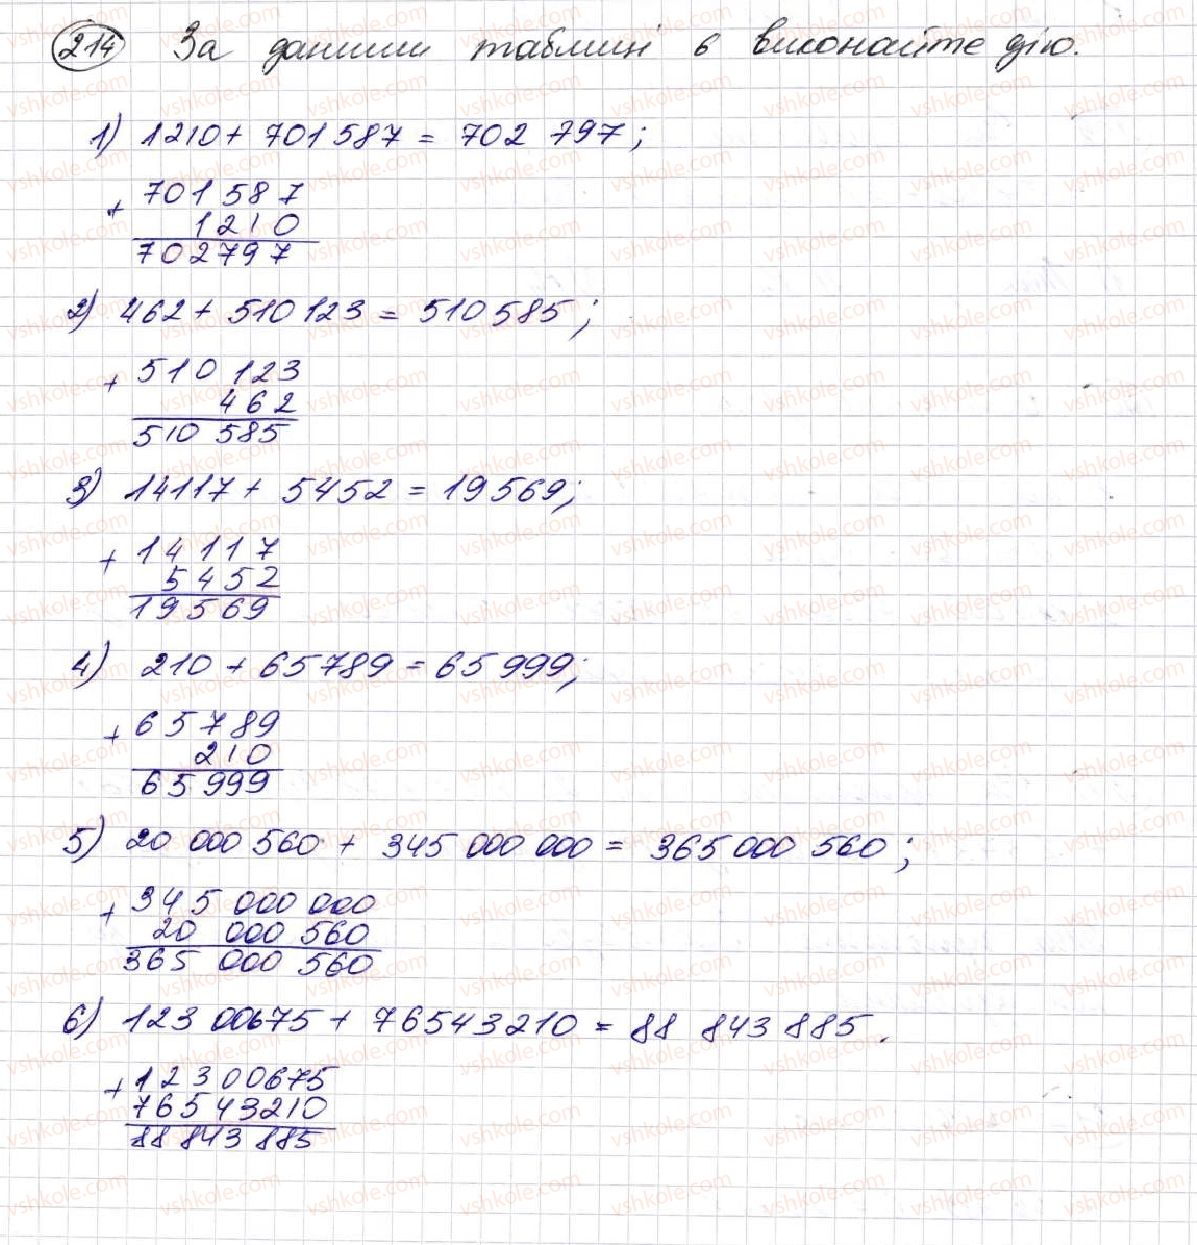 214 За даними таблиці 6 виконайте дію.
1) 1210 + 701 587 = 702 797;
+ 701 587
1210
702797
2) 462 + 510 123 = 510 585;
+ 510 123
462
510 585
3) 14117 + 5452 = 19569;
+ 14 117
5 452
19569
4) 210 + 65789 = 65 999;
+ 65 789
210
65 999
5) 20 000 560 + 345 000 000 = 365 000 560;
+ 345 000 000
20 000 560
365 000 560
6) 123 00675 + 76543210 = 88 843 885.
+ 12300675
76543210
88 843 885